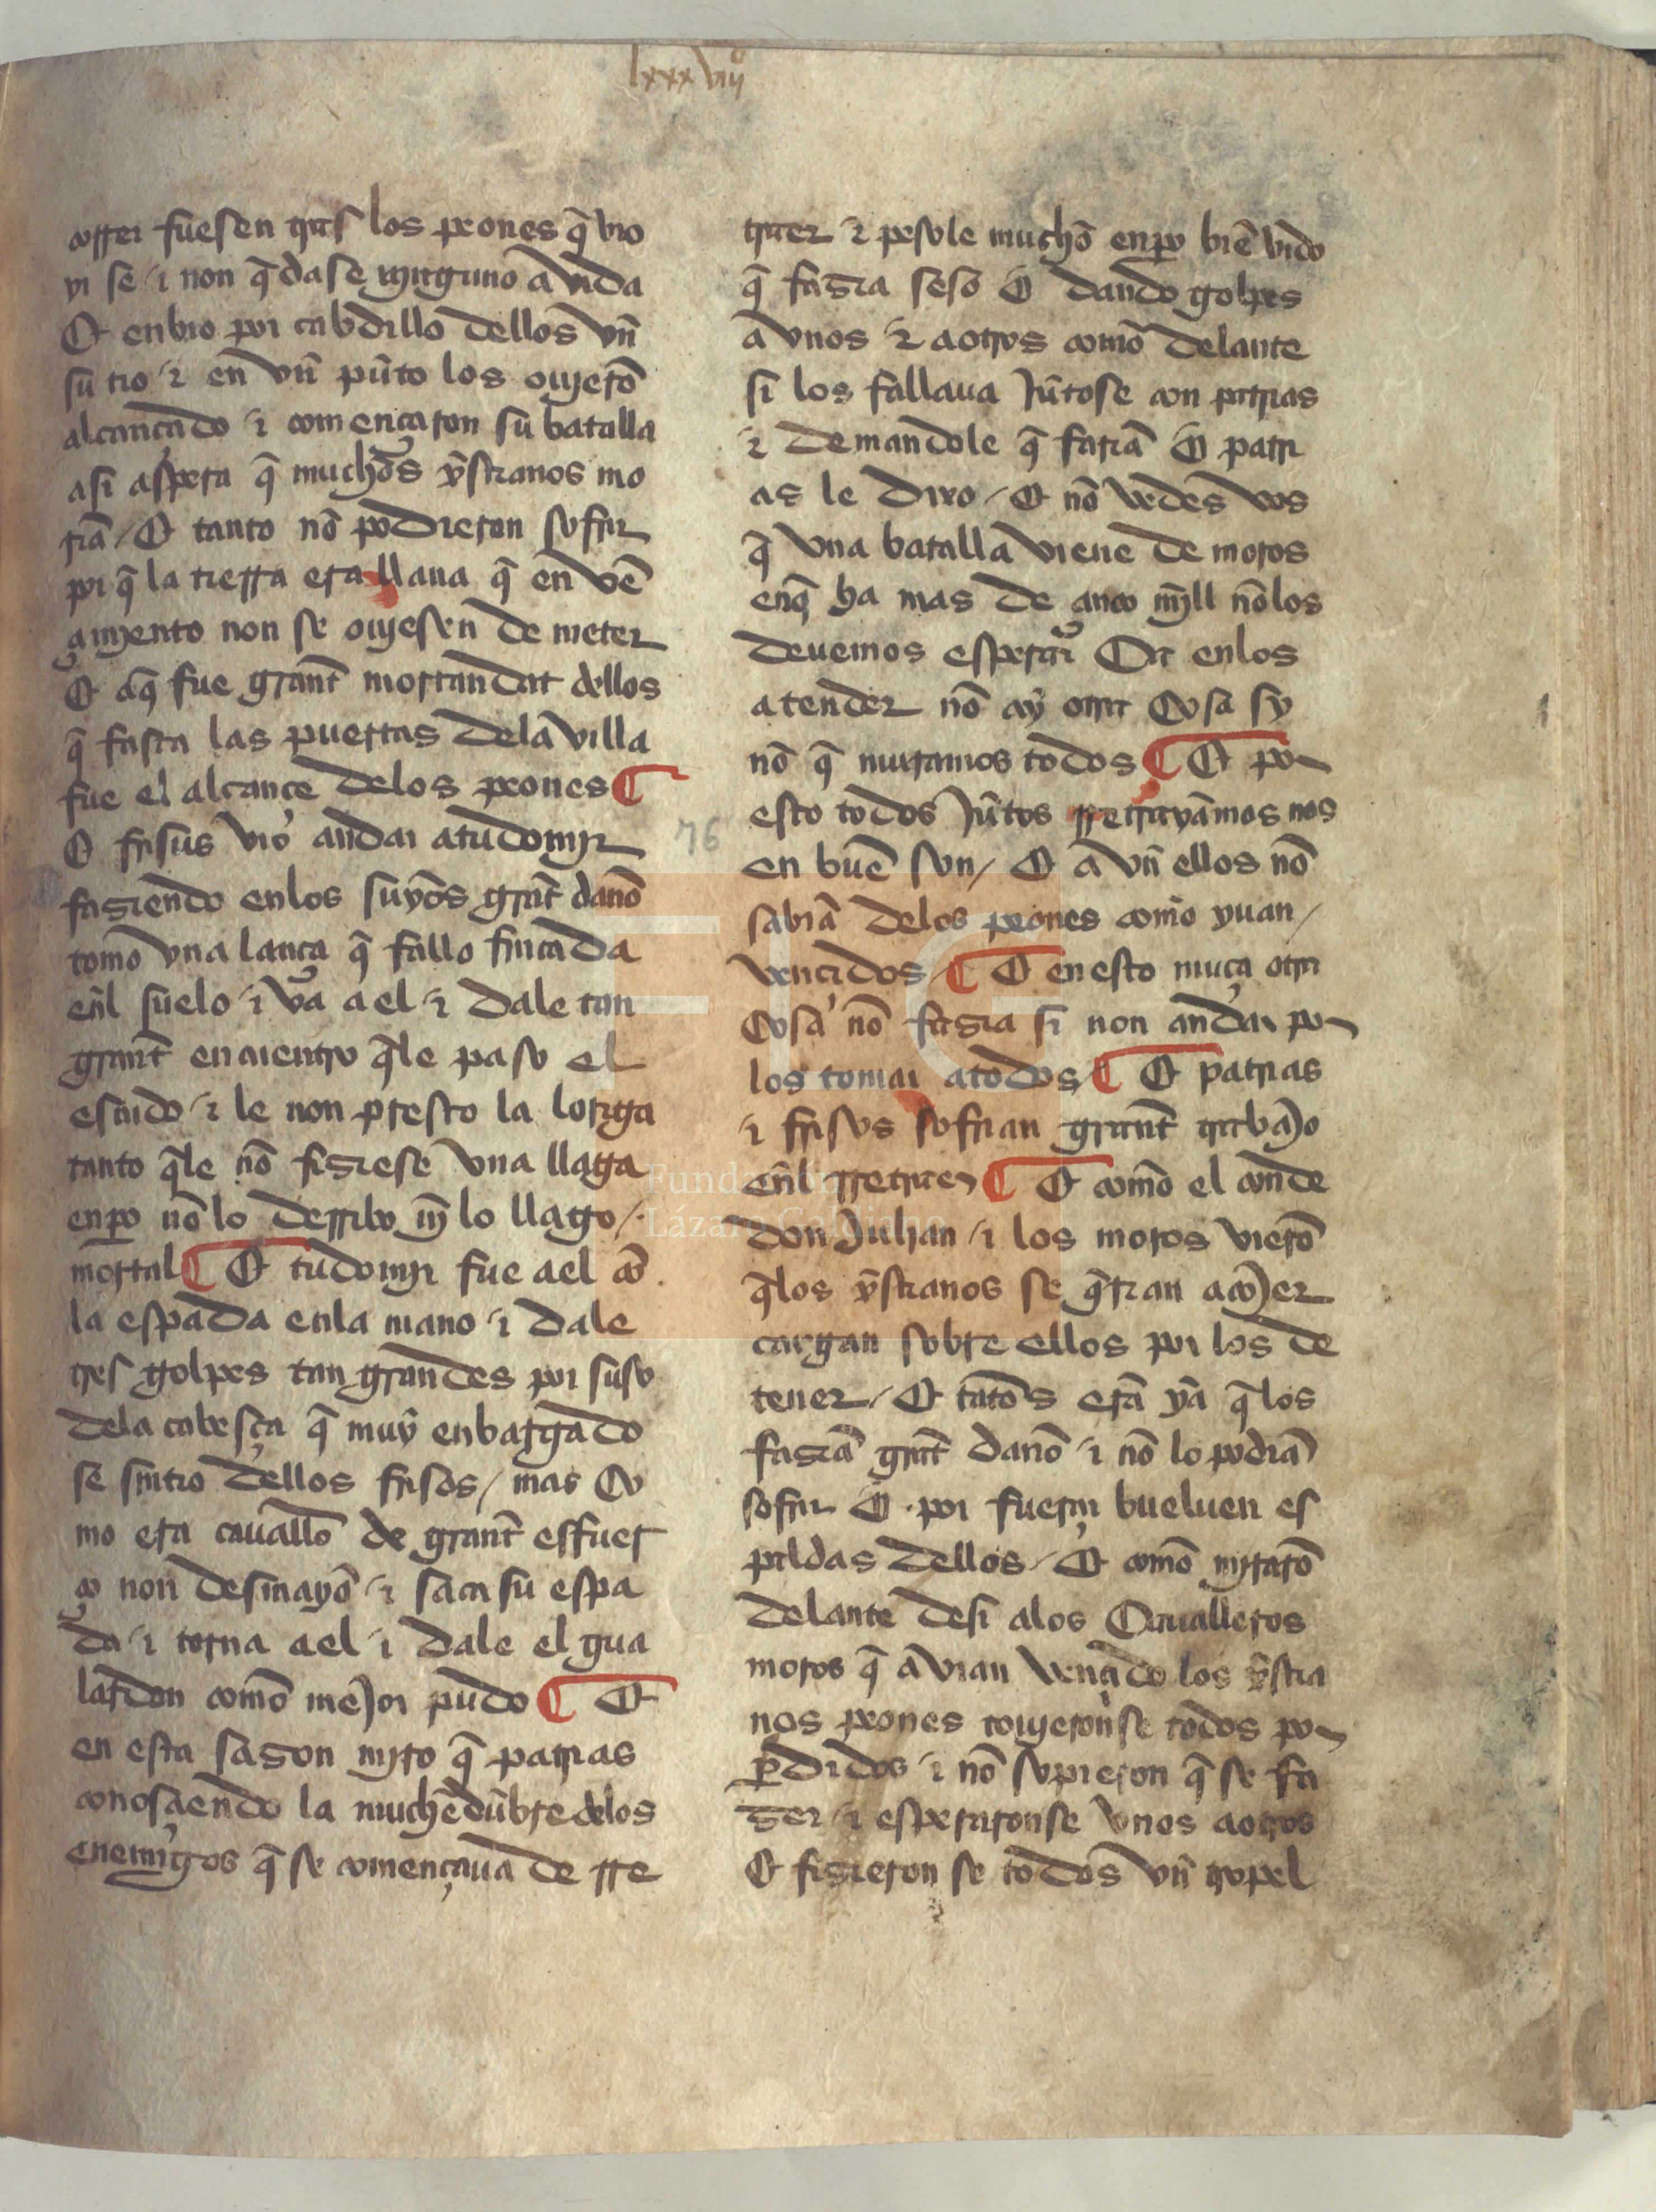 lxxxviijº
correr fuesen tras los peones q̃ vio
yr se ⁊ non q̃dase njnguno a vida
Et enbio por cabdillo dellos vn̄
su tio ⁊ en vn̄ pũto los oujerõ
alcançado ⁊ començaron su batalla
asi aspera q̃ muchos xp̃stianos mo
riã / Et tanto nõ podieron sofrir
por q̃ la tierra era llana q̃ en vẽ
çimjento non se oujesen de meter
Et aq̃ fue grant mortandat dellos
q̃ fasta las puertas dela villa
fue el alcançe delos peones ¶
O frisus vio andar a tudomjr
fasiendo enlos suyos grãt daño
tomo vna lança q̃ fallo fincada
en̄l suelo ⁊ va a el ⁊ dale tan
grant encuentro q̃le paso el
escudo ⁊ le non presto la loriga
tanto q̃le nõ fisiese vna llaga
enpo nõ lo derribo nj̃ lo llago /.
mortal ¶ Et tudomjr fue a el cõ
la espada enla mano ⁊ dale
tres golpes tan grandes por suso
dela cabesça q̃ muy enbargado
se sintio dellos frisos / mas Co
mo era cauallo de grant esfuer
ço non desmayo ⁊ saca su espa
da ⁊ torna a el ⁊ dale el gua
lardon como mejor pudo ¶ Et
en esta sason mjro q̃ patrias
conosçiendo la muchedũbre delos
enemjgos q̃ se començaua de rre
traer ⁊ pesole mucho enpo biẽ vido
q̃ fasia seso E dando golpes
a vnos ⁊ a otros como delante
si los fallaua Jũtose con patrias
⁊ demandole q̃ fariã E patri
as le dixo / Et nõ vedes vos
q̃ vna batalla viene de moros
enq̃ ha mas de çinco mjll nõ los
deuemos esperar Ca enlos
atender nõ ay otra Cosa sy
nõ q̃ muramos todos ¶ Et por
esto todos Jũtos rretrayamos nos
en buẽ son / Et avn̄ ellos nõ
sabiã delos peones como yuan /
vençidos / ¶ Et en esto muça otra
Cosa nõ fasia si non andar por
los tomar a todos ¶ Et patrias
⁊ frisos sofrian grant trabajo
en̄l rretraer ¶ Et como el conde
don Julian ⁊ los moros vierõ
q̃los xp̃stianos se q̃rian acojer
cargan sobre ellos por los de
tener / Et tãtos erã ya q̃ los
fasiã grãt daño ⁊ nõ lo podiã
sofrir E por fuerça bueluen es
paldas dellos / Et como mjrarõ
delante de si alos Caualleros
moros q̃ avian vençido los xp̃stia
nos peones toujeronse todos por
p̱didos ⁊ nõ sopieron q̃ se fa
ser ⁊ esperaronse vnos a otros
Et fisieron se todos vn̄ tropel
76
FLG
Fundación
Lázaro Galdiano